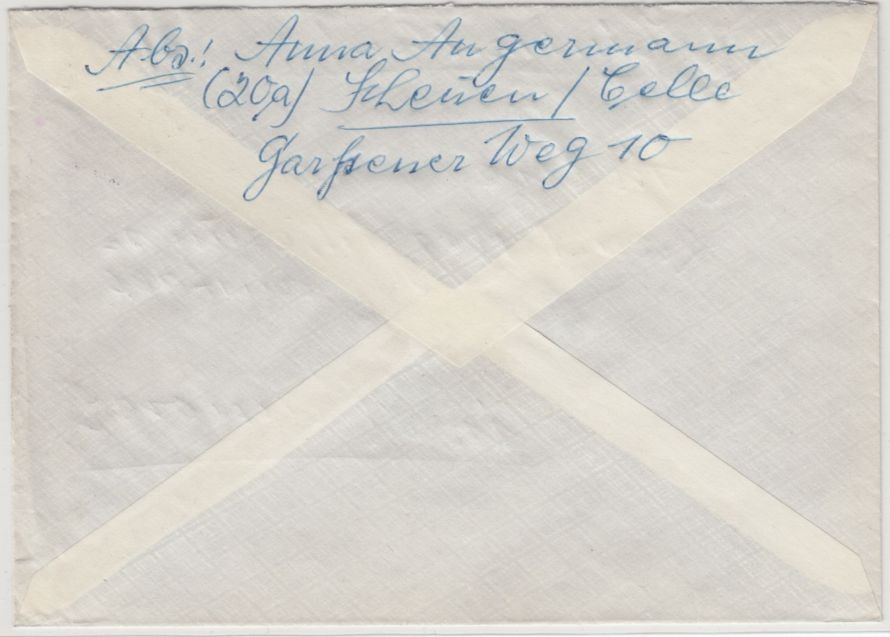 Abs.: Anna Angermann
(20a) Scheuen / Celle
Garßener Weg 10